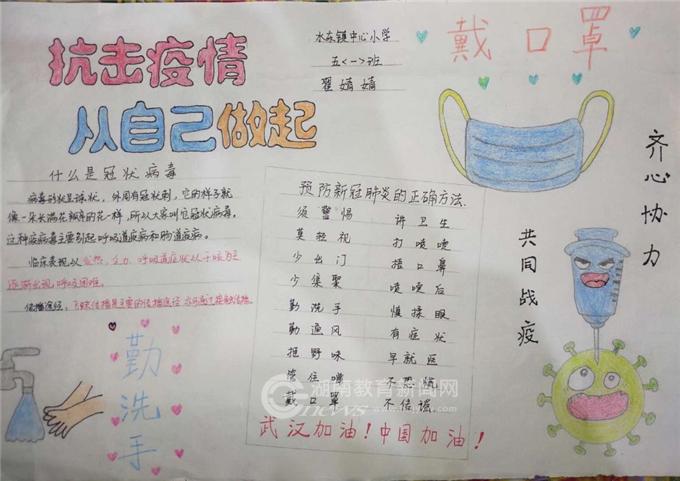 抗击疫情
从自己做起
水东镇中心小学
五<一>班
翟婧婧
戴口罩
什么是冠状病毒
病毒形状是球状，外围有冠状刺，它的样子就
像一朵长满花瓣的花一样，所以大家叫它冠状病毒。
这种病毒主要引起呼吸道疾病和肠道疾病。
临床表现以发热，乏力，呼吸道症状以干咳为主
逐渐出现，呼吸困难。
传播途径：飞沫传播是主要的传播途径
勤洗手
预防新冠肺炎的正确方法
须警惕 讲卫生
莫轻视 打喷嚏
少出门 捂口鼻
少集聚 喷嚏后
勤洗手 慎揉眼
勤通风 有症状
拒野味 早就医
管住嘴 不恐慌
戴口罩 不传谣
武汉加油！中国加油！
齐心协力
共同战疫
湖南教育新闻网
news